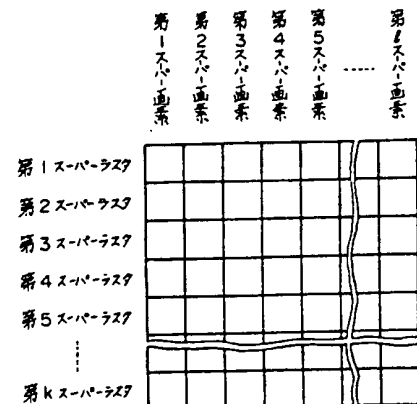 第1スーパー画素
第2スーパー画素
第3スーパー画素
第4スーパー画素
第5スーパー画素
……
第ℓスーパー画素
第1スーパーラスタ
第2スーパーラスタ
第3スーパーラスタ
第4スーパーラスタ
第5スーパーラスタ
……
第kスーパーラスタ